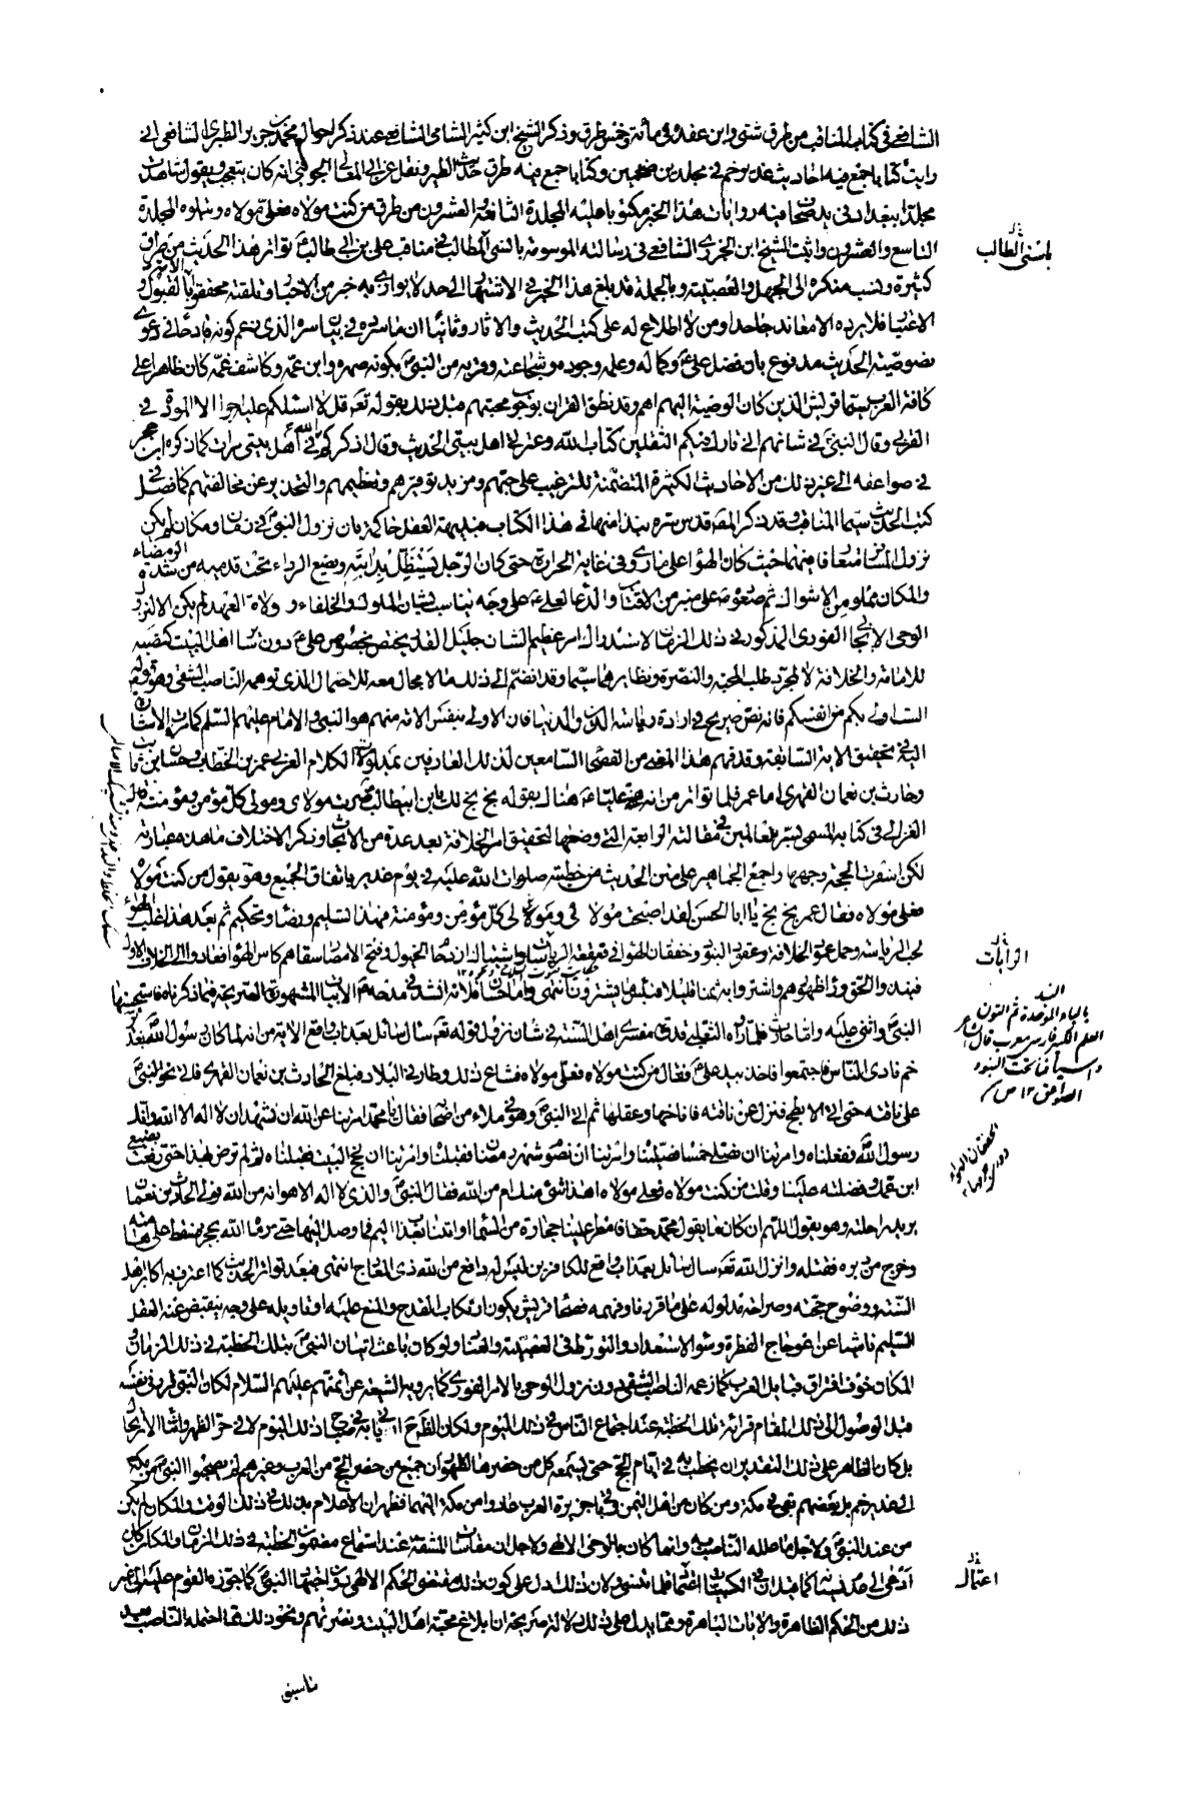 الشافعي في كتاب المناقب من طرق شتى وابن عقدة في مائة وخمس طرق وذكر الشيخ ابن كثير الشامي الشافعي عند ذكر احوال محمد بن جرير الطبري الشافعي اني
رايت كتابا جمع فيه احاديث غدير خم في مجلدين ضخمين وكتابا جمع فيه طرق حديث الطير ونقل عن ابي المعالي الجويني انه كان يتعجب ويقول شاهدت
مجلدا ببغداد في يد صحاف فيه روايات هذا الخبر مكتوبا عليه المجلدة الثامنة والعشرون من طرق من كنت مولاه فعلي مولاه ويتلوه المجلدة
التاسع والعشرون واثبت الشيخ ابن الجزري الشافعي في رسالته الموسومة باسنى المطالب في مناقب علي بن ابي طالب ع تواتر هذا الحديث من طرق
كثيرة ونسب منكره الى الجهل والعصبية وبالجملة قد بلغ هذا الخبر في الاشتهار الى حد لا يوازى به خبر من الاخبار وتلقته محققوا الامة بالقبول و
الاعتبار فلا يرده الا معاند جاحد او من لا اطلاع له على كتب الحديث والاثار وثانيا ان ما سرده في بيان سر الذي زعم كونه قادحا في دعوى
نصوصية الحديث مدفوع بان فضل علي ع وكماله وعلمه وجوده وشجاعته وقربه من النبي ص بكونه صهره وابن عمه وكاشف غمه كان ظاهرا على
كافة العرب سيما قريش الذين كان الوصية اليهم اهم وقد نطق القران بوجوب محبتهم قبل ذلك بقوله تعا قل لا اسئلكم عليه اجرا الا المودة في
القربى وقال النبي ص في شانهم اني تارك فيكم الثقلين كتاب الله وعترتي اهل بيتي الحديث وقال اذكركم الله في اهل بيتي مرات كما ذكره ابن حجر
في صواعقه الى غير ذلك من الاحاديث الكثيرة المتضمنة للترغيب على حبهم ومزيد توقيرهم وتعظيمهم والتحذير عن مخالفتهم كما فصل في
كتب الحديث سيما المناقب وقد ذكر المص قدس سره نبذا منها في هذا الكتاب فبديهة العقل حاكمة بان نزول النبي ص في زمان ومكان لم يكن
نزول المسافر متعارفا فيهما حيث كان الهوا على ما روي في غاية الحرارة حتى كان الرجل يستظل بدابته ويضع الرداء تحت قدميه من شدة الرمضاء
والمكان مملو من الاشواك ثم صعوده على منبر من الاقتاب والدعا لعلي ع على وجه يناسب لشان الملوك والخلفاء وولاة العهد لم يكن الا لنزول
الوحي الايجابي الفوري المذكور في ذلك الزمان لاستدراك امر عظيم الشان جليل القدر يختص بخصوص علي ع دون سائر اهل البيت كنصبه
للامامة والخلافة لا لمجرد طلب المحبة والنصرة ونظايرهما سيما وقد انضم الى ذلك ما لا مجال معه للاحتمال الذي توهمه الناصب الشقي وهو قوله
الست اولى بكم من انفسكم فانه نص صريح في ارادة رياسة الدين والدنيا فان الاولى بنفس الامة منهم هو النبي والامام عليهم السلم كما مر الاشارة
اليه في تحقيق الاية السابقة وقد فهم هذا المعنى من الفصحا السامعين لذلك العارفين بمدلول الكلام العربي عمر بن الخطاب وحسان بن ثابت
وحارث بن نعمان الفهري اما عمر فلما تواتر من انه هنا عليا ع هناك بقوله بخ بخ لك يا بن ابيطالب اصبحت مولاي ومولى كل مؤمن ومؤمنة قال
الغزالي في كتابه المسمى بسر العالمين في مقالته الرابعة التي وضعها لتحقيق امر الخلافة بعد عدة من الابحاث وذكر الاختلاف ما هذه عبارته
لكن اسفرت الحجة وجهها واجمع الجماهير على متن الحديث من خطبته صلوات الله عليه في يوم غدير باتفاق الجميع وهو يقول من كنت مولاه
فعلي مولاه فقال عمر بخ بخ يا ابا الحسن لقد اصبحت مولاي ومولى كل مؤمن ومؤمنة فهذا تسليم ورضا وتحكيم ثم بعد هذا غلب الهوى
لحب الرياسة وحمل عمود الخلافة وعقود البنود وخفقان الهوا في قعقعة الرايات واشتباك ازدحام الخيول وفتح الامصار سقاهم كاس الهوا فعادوا الى الخلاف الاول
فنبذوا الحق وراء ظهورهم واشتروا به ثمنا قليلا فبئس ما يشترون انتهى واما حسان فلانه انشد في مدحه ع الابيات المشهورة الصريحة فيما ذكرناه فاستحسنها
النبي ص واثنى عليه واما حارث فلما رواه الثعلبي قدوة مفسري اهل السنة في شان نزول قوله تعا سال سائل بعذاب واقع الاية من انه لما كان رسول الله ص بغدير
خم نادى الناس فاجتمعوا فاخذ بيد علي ع فقال من كنت مولاه فعلي مولاه فشاع ذلك وطار في البلاد فبلغ الحارث بن نعمان الفهري فاتى نحو النبي ص
على ناقته حتى اتى الابطح فنزل عن ناقته فاناخها وعقلها ثم اتى النبي ص وهو في ملاء من اصحابه فقال يا محمد امرتنا عن الله ان نشهد ان لا اله الا الله وانك
رسول الله ففعلناه وامرتنا ان نصلي خمسا فصلينا وامرتنا ان نصوم شهر رمضان فقبلنا وامرتنا ان نحج البيت فقبلناه ثم لم ترض بهذا حتى رفعت بضبعي
ابن عمك وفضلته علينا وقلت من كنت مولاه فعلي مولاه اهذا شيء منك ام من الله فقال النبي ص والذي لا اله الا هو انه من الله فولى الحارث بن نعمان
يريد راحلته وهو يقول اللهم ان كان ما يقول محمد حقا فامطر علينا حجارة من السماء او ائتنا بعذاب اليم فما وصل اليها حتى رماه الله بحجر فسقط على هامته
وخرج من دبره فقتله وانزل الله تعا سال سائل بعذاب واقع للكافرين ليس له دافع من الله ذي المعارج انتهى فبعد تواتر الحديث كما اعترف به اكابر اهل
السنة ووضوح حجته وصراحة مدلوله على ما قرره وفهمه فصحاء قريش يكون ارتكاب القدح والمنع عليه او تاويله على وجه ينقبض عنه العقل
السليم ناشيا عن اعوجاج الفطرة وسوء الاستعداد والتورط في العصبية والعناد ولو كان باعث اتيان النبي ص بتلك الخطبة في ذلك الزمان و
المكان خوف افتراق قبايل العرب كما زعمه الناصب الشقي دون نزول الوحي بالامر الفوري كما يرويه الشيعة عن ائمتهم عليهم السلام لكان النبي ص في نفسه
قبل الوصول الى ذلك المقام قراءة تلك الخطبة عند اجتماع الناس في ذلك اليوم ولكان الظاهر ان ياتي به في صباح ذلك اليوم لا في حر الظهر واثناء الارتحال
بل كان الظاهر على ذلك التقدير ان يخطب به في ايام الحج حتى يسمعه كل من حضر هنا لظهور ان جميع من حضر الحج من العرب وغيرهم لم يصحبوا النبي ص من مكة
الى غدير خم بل بعضهم بقي في مكة ومن كان من اهل اليمن وباقي جزيرة العرب عادوا من مكة اليها فظهر ان الاعلام بذلك في ذلك الوقت والمكان لم يكن
من عند النبي ص ولاجل ما علله الناصب به وانما كان بالوحي الالهي ولاجل ان مقاسات المشقة عند استماع مضمون الخطبة في ذلك الزمان والمكان كان
ذلك من الحكم الظاهرة والايات الباهرة ومما يدل على ذلك دلالة صريحة ان بلاغ محبة اهل البيت ونصرتهم ونحو ذلك مما احتمله الناصب بعيد
ما سبق
باسنى المطالب
الرايات
البند
بالباء الموحدة ثم النون
العلم الكبير فارسي معرب قال الشاعر
واسيافنا تحت البنود
الصواعق ١٢ ص
اعتمال